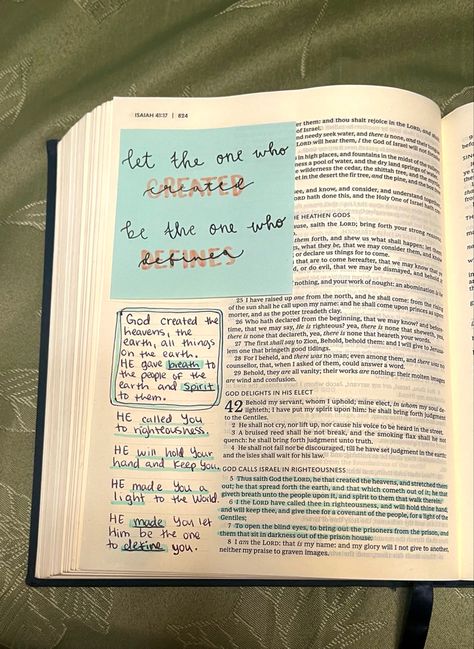 ISAIAH 41:17 | 624
let the one who
CREATED
created
be the one who
DEFINES
defines
God created the
heavens, the
earth, all things
on the earth.
HE gave breath to
the people of the
earth and spirit
to them.
HE called you
to righteousness.
HE will hold your
hand and keep you.
HE made you a
light to the world.
HE made you let
Him be the one
to define you.
them: and thou shalt rejoice in the LORD, and
of Israel.
and needy seek water, and there is none, and their tongue
LORD will hear them, I the God of Israel will
in high places, and fountains in the midst of the
ness a pool of water, and the dry land springs of
wilderness the cedar, the shittah tree, and the myrtle,
set in the desert the fir tree, and the pine, and the box
see, and know, and consider, and understand together,
LORD hath done this, and the Holy One of Israel hath
HE HEATHEN GODS
cause, saith the LORD; bring forth your strong
them forth, and shew us what shall happen: let
things, what they be, that we may consider them, and know
or declare us things for to come.
that are to come hereafter, that we may know that
or do evil, that we may be dismayed, and behold
nothing, and your work of nought: an abomination is
25 I have raised up one from the north, and he shall come: from the rising
of the sun shall he call upon my name: and he shall come upon princes as upon
morter, and as the potter treadeth clay.
26 Who hath declared from the beginning, that we may know? and before
time, that we may say, He is righteous? yea, there is none that sheweth, yea,
there is none that declareth, yea, there is none that heareth your words.
27 The first shall say to Zion, Behold, behold them: and I will give to Jerusa-
lem one that bringeth good tidings.
28 For I beheld, and there was no man; even among them, and there was no
counsellor, that, when I asked of them, could answer a word.
29 Behold, they are all vanity; their works are nothing: their molten images
are wind and confusion.
GOD DELIGHTS IN HIS ELECT
42 Behold my servant, whom I uphold; mine elect, in whom my soul de-
lighteth; I have put my spirit upon him: he shall bring forth judgment
to the Gentiles.
2 He shall not cry, nor lift up, nor cause his voice to be heard in the street.
3 A bruised reed shall he not break, and the smoking flax shall he not
quench: he shall bring forth judgment unto truth.
4 He shall not fail nor be discouraged, till he have set judgment in the earth:
and the isles shall wait for his law.
GOD CALLS ISRAEL IN RIGHTEOUSNESS
5 Thus saith God the LORD, he that created the heavens, and stretched them
out; he that spread forth the earth, and that which cometh out of it; he that
giveth breath unto the people upon it, and spirit to them that walk therein:
6 I the LORD have called thee in righteousness, and will hold thine hand,
and will keep thee, and give thee for a covenant of the people, for a light of the
Gentiles;
7 To open the blind eyes, to bring out the prisoners from the prison, and
them that sit in darkness out of the prison house.
8 I am the LORD: that is my name: and my glory will I not give to another,
neither my praise to graven images.